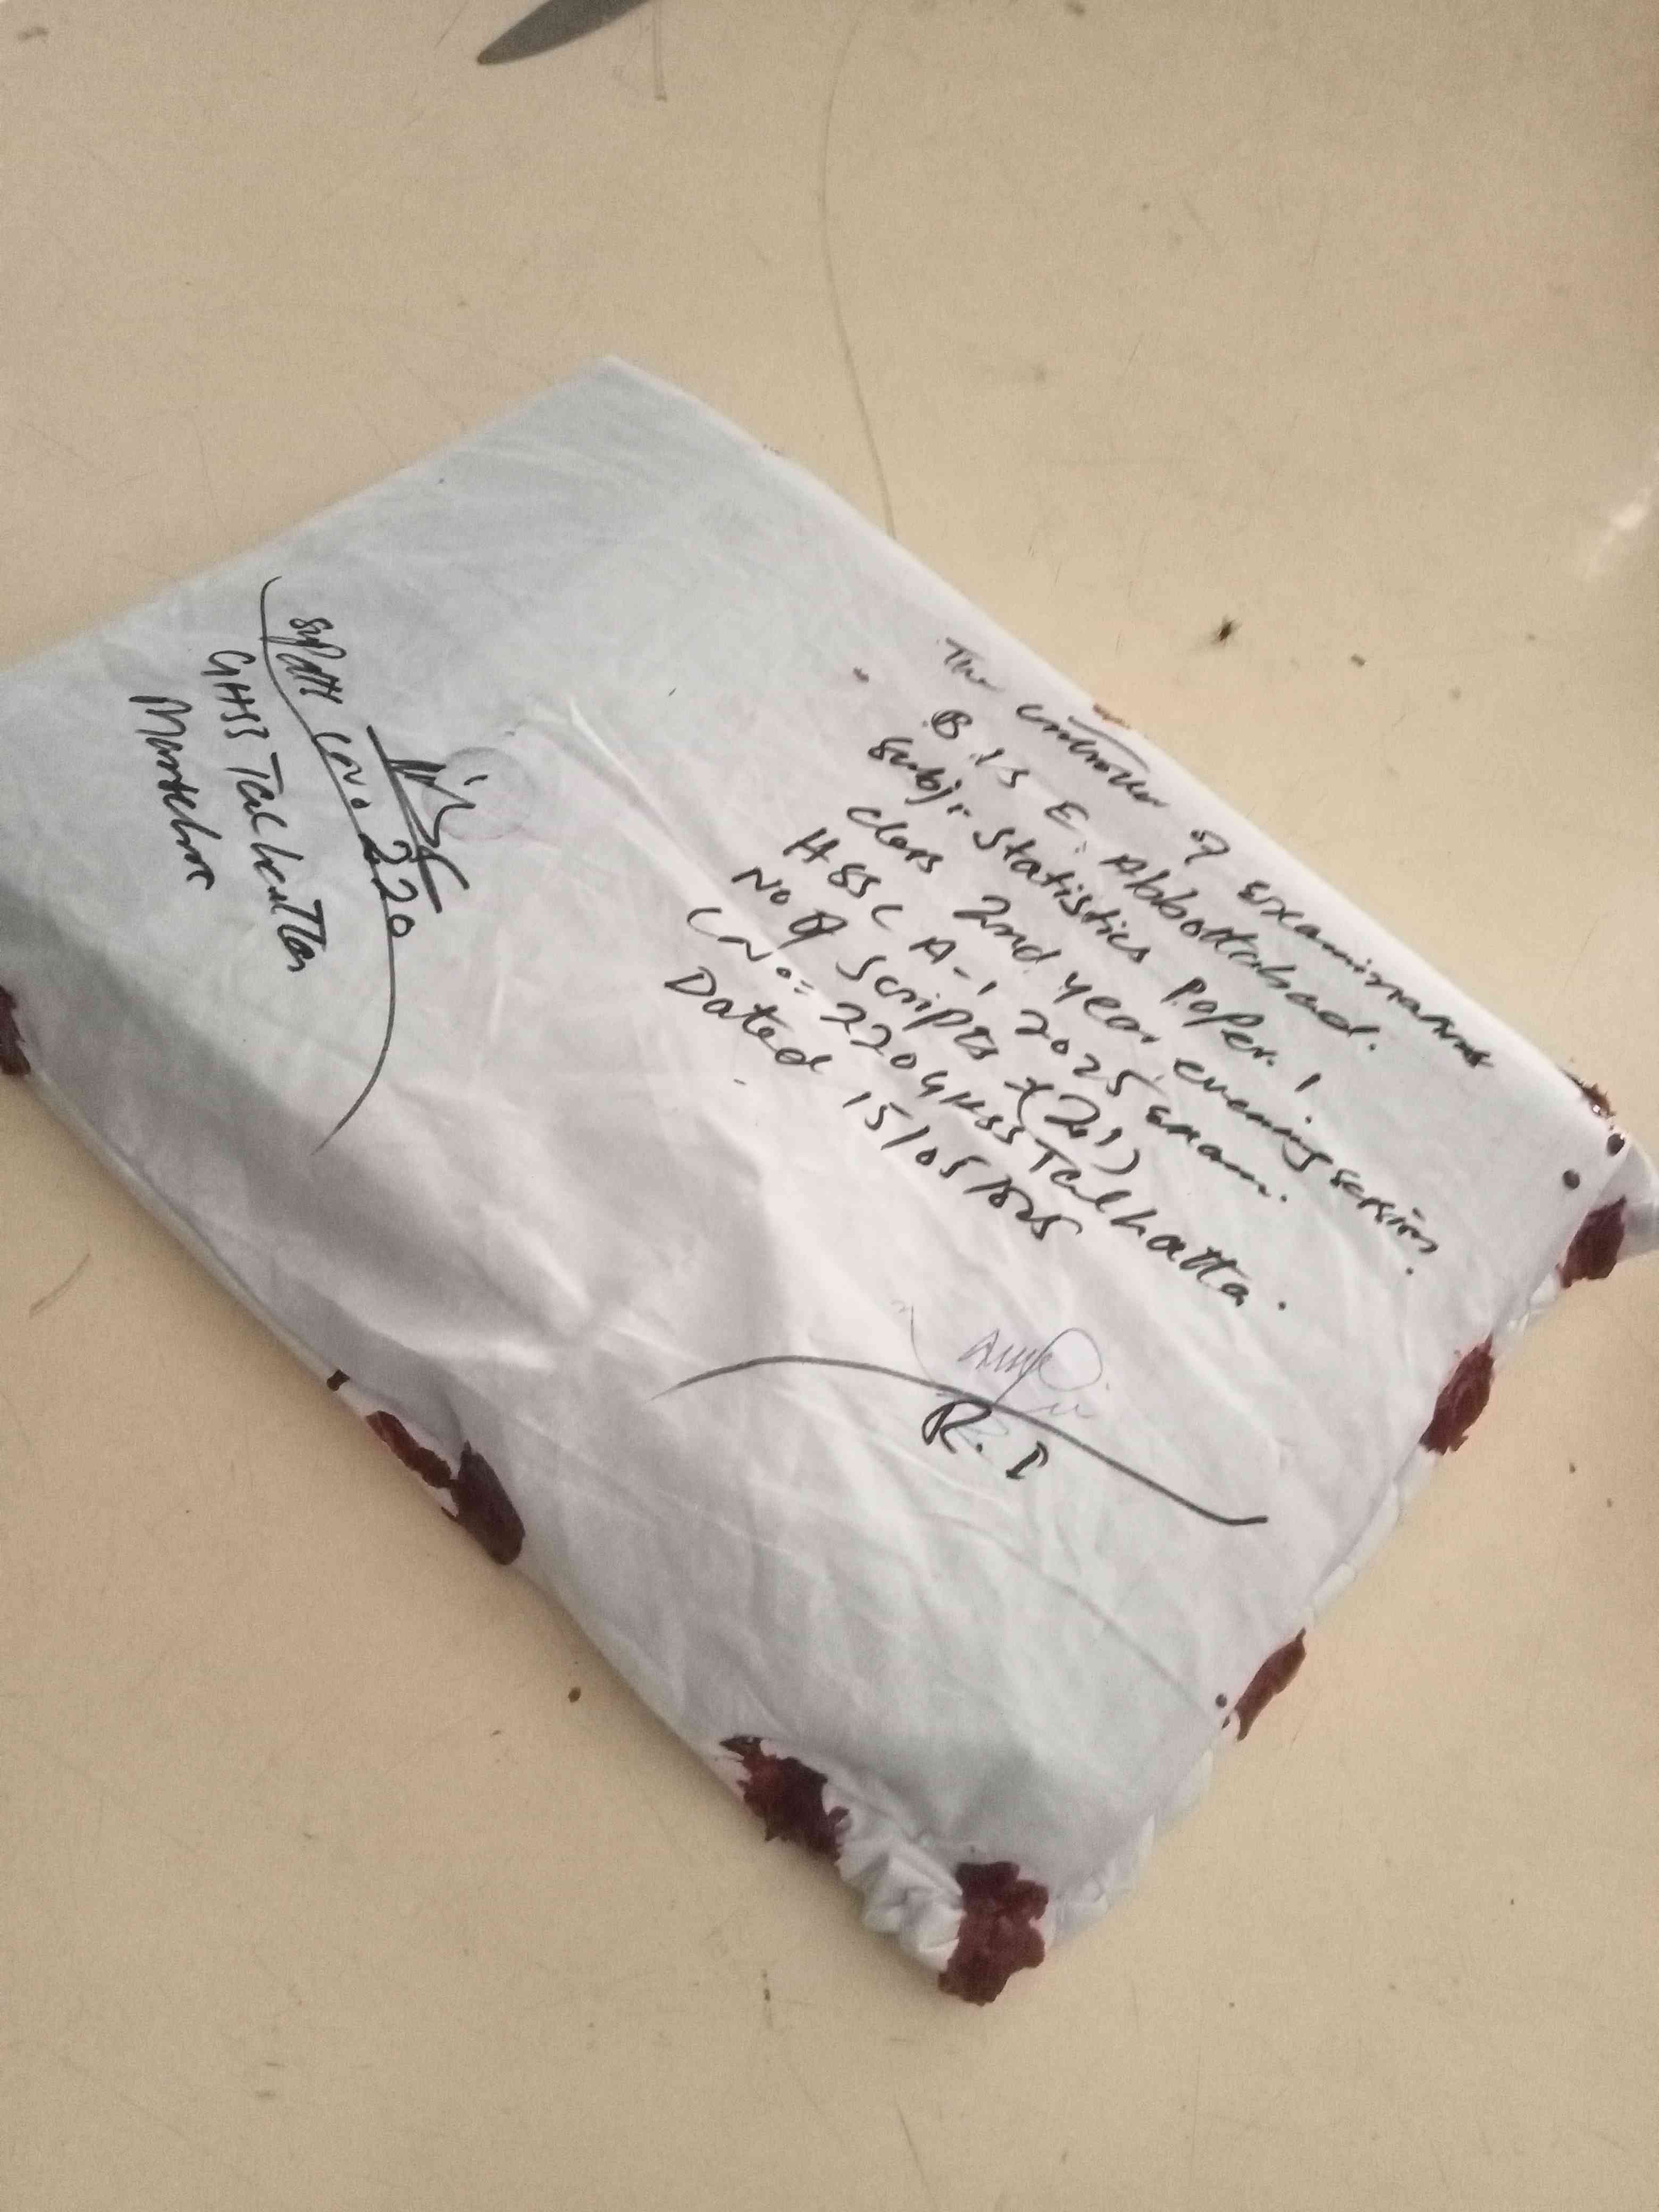 The controller of examinations
B.I.S.E. Abbottabad.
Subj:- Statistics Paper. 1
class 2nd year evening session.
HSSC A-1 2025 exam.
No of Scripts
C No:= 220 GHSS Talhatta.
Dated 15/05/2025
R. I
Supdtt C No. 220
GHSS Talhatta
Mansehra